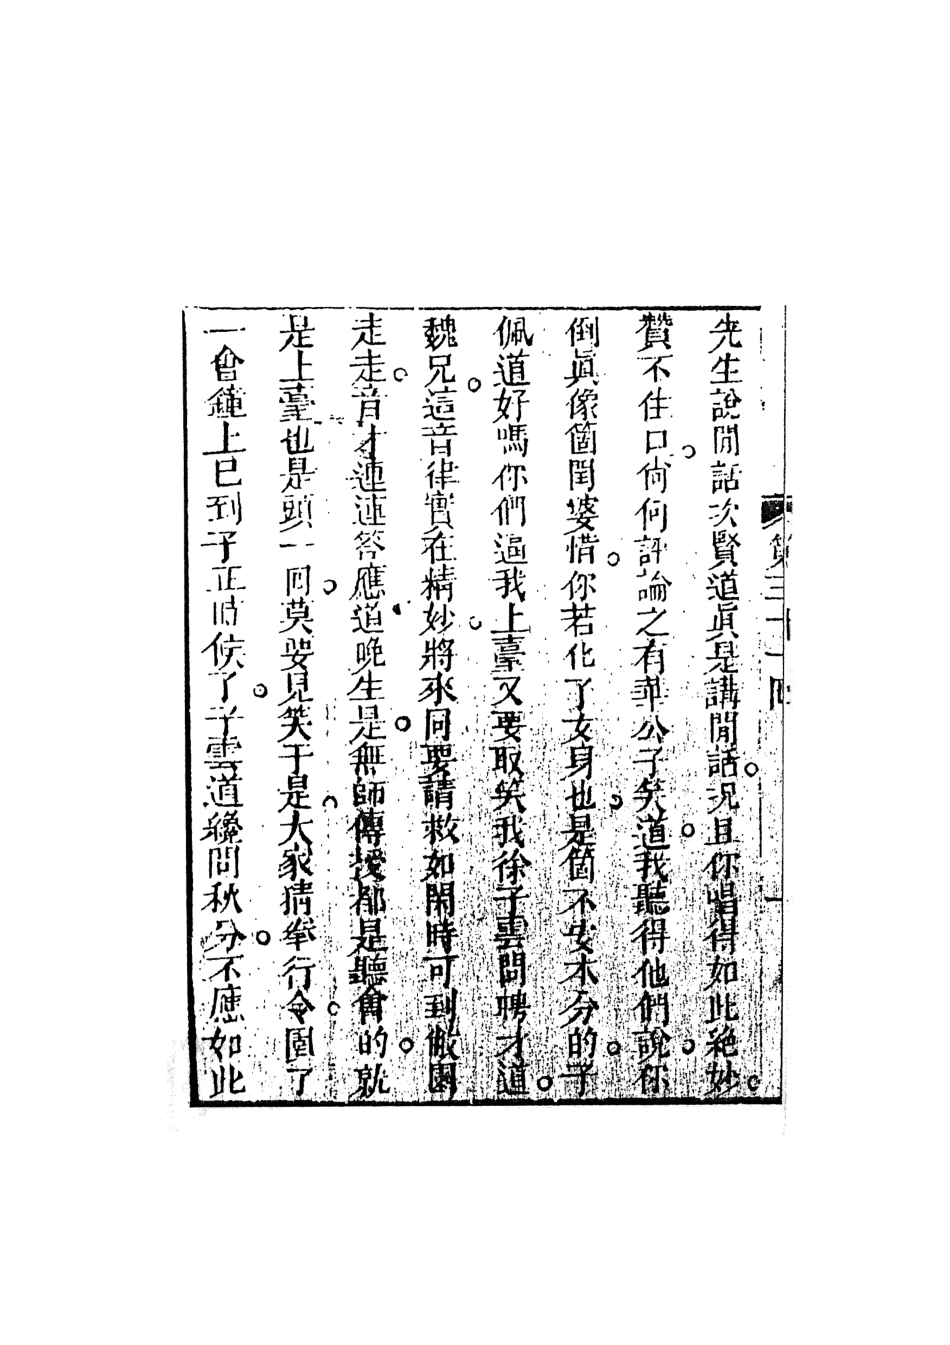 第三十一回
一
先生說閒話次賢道眞是講閒話況且你唱得如此絕妙
贊不住口尙何評論之有華公子笑道我聽得他們說你
倒眞像箇閨婆惜你若化了女身也是箇不安本分的子
佩道好嗎你們逼我上臺又要取笑我徐子雲問聘才道
魏兄這音律實在精妙將來同要請敎如閑時可到敝園
走走音才連連答應道晚生是無師傳授都是聽會的就
是上臺也是頭一回莫要見笑于是大家猜拳行令圍了
一會鐘上已到子正時候了子雲道纔問秋分不應如此